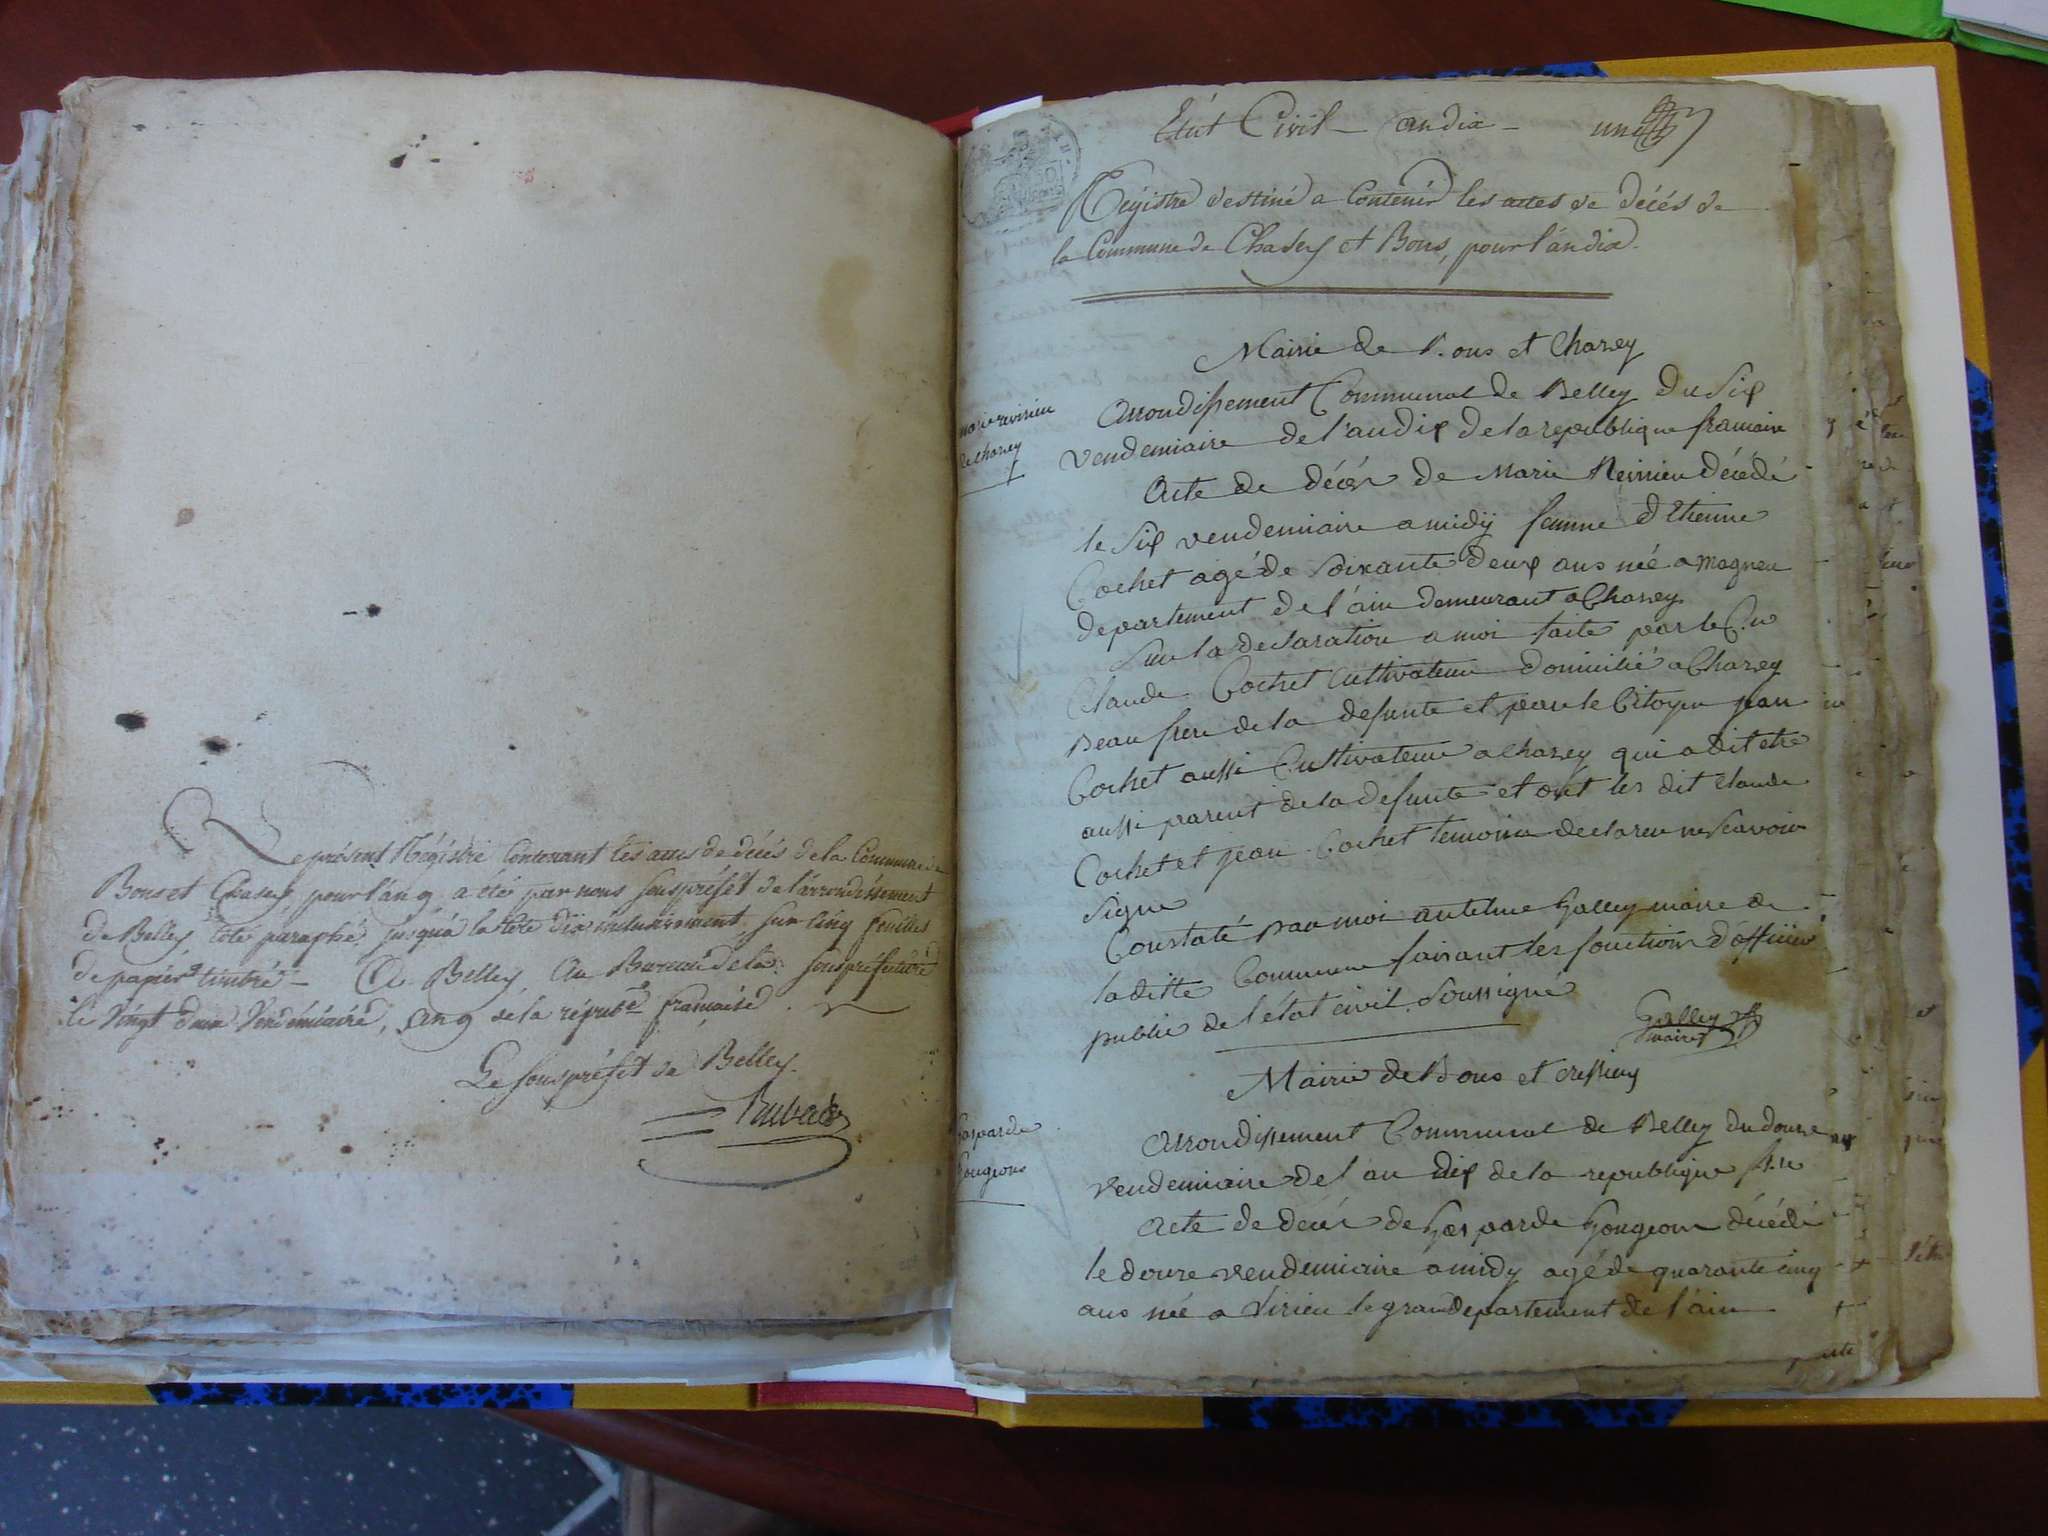 Le présent Régistre Contenant les actes de décés de la Commune de
Bons et Chasey pour l'an 9 a été par nous souspréfet de l'arrondissement
de Belley coté paraphé, jusqu'à la cote dix inclusivement, sur cinq feuilles
de papier timbré - A Belley, Au Bureau de la souspréfecture
le vingt deux Vendémiaire, an 9 de la répub.e française
Le souspréfet de Belley.
État Civil - an dix - un
Régistre destiné a Contenir les actes de décés de
la Commune de Chasey et Bons, pour l'an dix.
Mairie de Bons et Chazey
marie
de chazey
Arrondissement Communal de Belley Du Six
vendemiaire de l'an dix de la republique francaise
Acte de décés de Marie Reirieu décédé
le Six vendemiaire a midy femme d'Etienne
Cochet agé de soixante deux ans née a Magneu
departement de l'ain demeurant a Chazey
Sur la declaration a moi faite par le C.en
Claude Cochet Cultivateur domicilié a Chazey
Beau frere de la defunte et par le Citoyen jean
Cochet aussi Cultivateur a Chazey qui a dit etre
aussi parent de la defunte et ont les dit Claude
Cochet et jean Cochet temoins declaré ne scavoir
Signer
Constaté par moi antelme Galley maire de
la ditte Commune faisant les fonctions d'officier
public de l'état civil soussigné
Galley
maire
Mairie de Bons et cressieu
Gasparde
Gougeons
Arrondissement Communal de Belley du douze
vendemiaire de l'an dix de la republique f.se
Acte de decés de Gasparde Gougeon décédé
le douze vendemiaire a midy agé de quarante cinq
ans née a Virieu le grand departement de l'ain